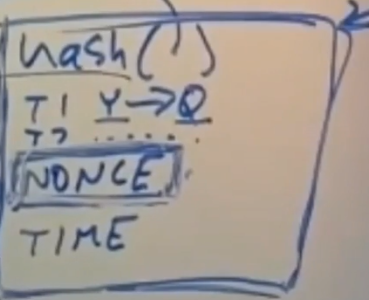 hash( )
T1 Y→Q
T2 .......
NONCE
TIME